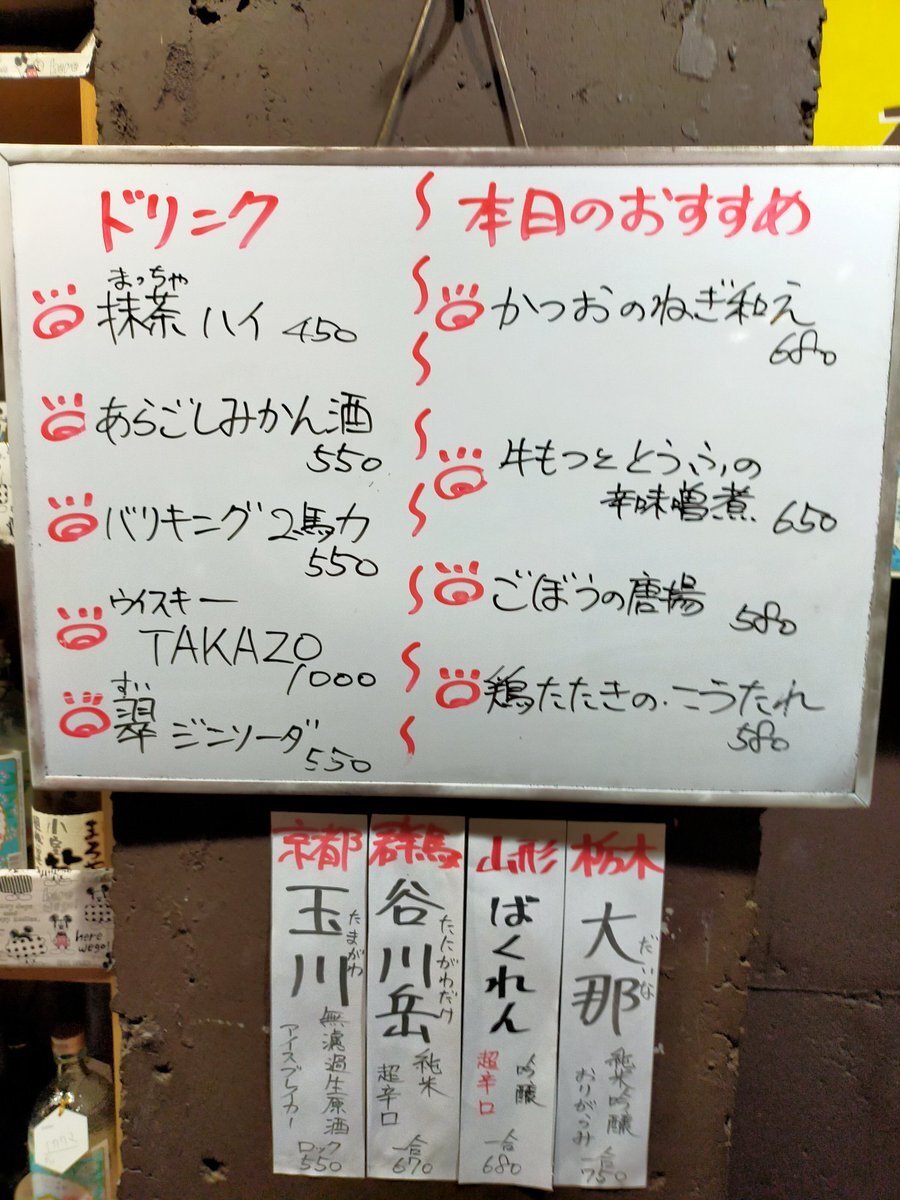 ドリンク
まっちゃ
抹茶ハイ 450
あらごしみかん酒
550
バリキング2馬力
550
ウイスキー
TAKAZO
1000
すい
翠ジンソーダ
550
本日のおすすめ
かつおのねぎ和え
680
牛もつととうふの
辛味噌煮 650
ごぼうの唐揚
580
鶏たたきのこうたれ
580
京都
玉川
たまがわ
無濾過生原酒
アイスブレイカー
ロック
550
群馬
谷川岳
たにがわだけ
純米
超辛口
一合
670
山形
ばくれん
吟醸
超辛口
一合
680
栃木
大那
だいな
純米吟醸
おりがらみ
一合
750
here
wego!